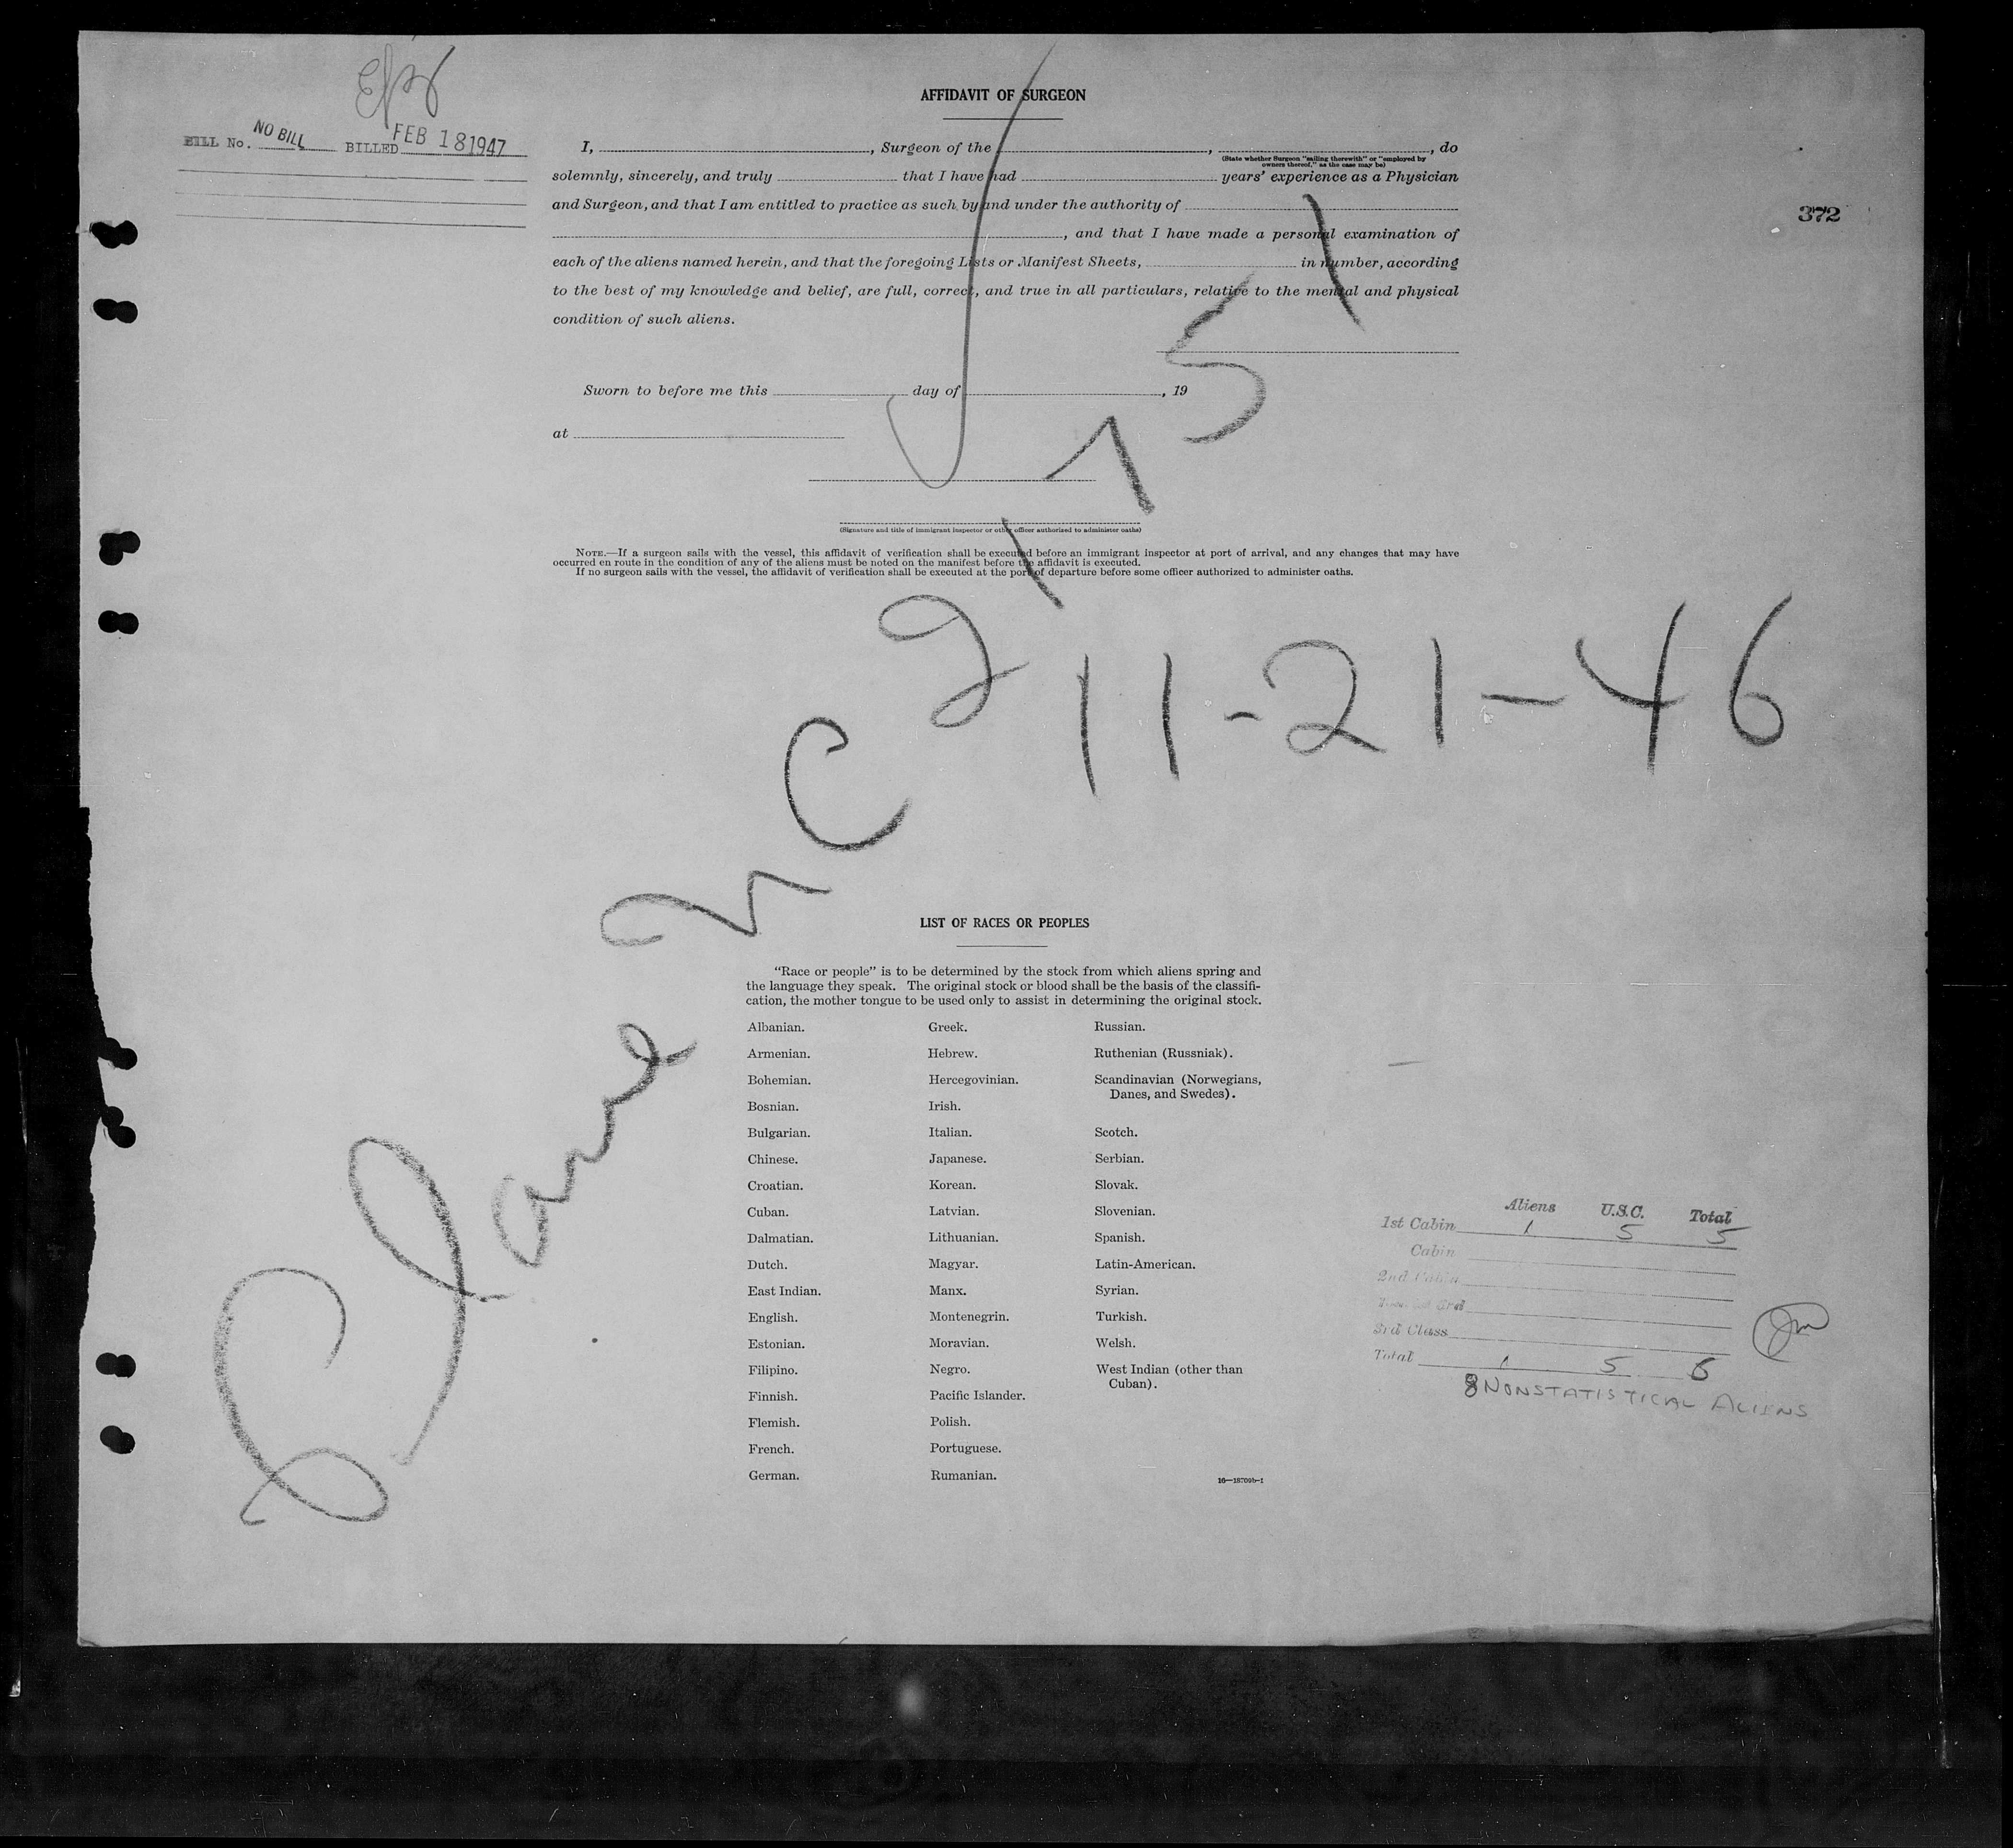 BILL No. NO BILL BILLED FEB 18 1947
AFFIDAVIT OF SURGEON
I, , Surgeon of the , , do
(State whether Surgeon "sailing therewith" or "employed by
owners thereof," as the case may be)
solemnly, sincerely, and truly that I have had years' experience as a Physician
and Surgeon, and that I am entitled to practice as such by and under the authority of
, and that I have made a personal examination of
each of the aliens named herein, and that the foregoing Lists or Manifest Sheets, in number, according
to the best of my knowledge and belief, are full, correct, and true in all particulars, relative to the mental and physical
condition of such aliens.
372
Sworn to before me this day of , 19
at
(Signature and title of immigrant inspector or other officer authorized to administer oaths)
NOTE.—If a surgeon sails with the vessel, this affidavit of verification shall be executed before an immigrant inspector at port of arrival, and any changes that may have
occurred en route in the condition of any of the aliens must be noted on the manifest before the affidavit is executed.
If no surgeon sails with the vessel, the affidavit of verification shall be executed at the port of departure before some officer authorized to administer oaths.
Plane NC 21151
11-21-46
LIST OF RACES OR PEOPLES
"Race or people" is to be determined by the stock from which aliens spring and
the language they speak. The original stock or blood shall be the basis of the classifi-
cation, the mother tongue to be used only to assist in determining the original stock.
Albanian.
Armenian.
Bohemian.
Bosnian.
Bulgarian.
Chinese.
Croatian.
Cuban.
Dalmatian.
Dutch.
East Indian.
English.
Estonian.
Filipino.
Finnish.
Flemish.
French.
German.
Greek.
Hebrew.
Hercegovinian.
Irish.
Italian.
Japanese.
Korean.
Latvian.
Lithuanian.
Magyar.
Manx.
Montenegrin.
Moravian.
Negro.
Pacific Islander.
Polish.
Portuguese.
Rumanian.
Russian.
Ruthenian (Russniak).
Scandinavian (Norwegians,
Danes, and Swedes).
Scotch.
Serbian.
Slovak.
Slovenian.
Spanish.
Latin-American.
Syrian.
Turkish.
Welsh.
West Indian (other than
Cuban).
16—18709b-1
Aliens U.S.C. Total
1st Cabin 1 5 5
Cabin
2nd Cabin
3rd Class
Total 1 5 6
8 NONSTATISTICAL ALIENS